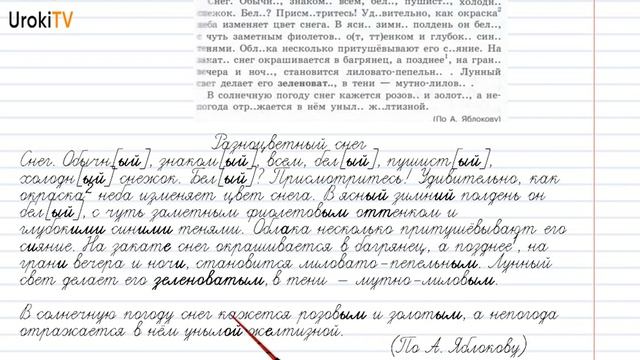 UrokiTV
Снег. Обычн.., знаком.. всем, бел.., пушист.., холодн..
снежок. Бел..? Присм..тритесь! Уд..вительно, как окраска²
неба изменяет цвет снега. В ясн.. зимн.. полдень он бел..,
с чуть заметным фиолетов.. о(т, тт)енком и глубок... син...
тенями. Обл..ка несколько притушёвывают его с..яние. На
закат.. снег окрашивается в багрянец, а позднее¹, на гран..
вечера и ноч.., становится лиловато-пепельн.. . Лунный
свет делает его зеленоват.., в тени — мутно-лилов.. .
В солнечную погоду снег кажется розов.. и золот.., а не-
погода отр..жается в нём уныл.. ж..лтизной.
(По А. Яблокову)
Разноцветный снег
Снег. Обычн[ый], знаком[ый], всем, бел[ый], пушист[ый],
холодн[ый] снежок. Бел[ый]? Присмотритесь! Удивительно, как
окраска² неба изменяет цвет снега. В ясный зимний полдень он
бел[ый], с чуть заметным фиолетовым оттенком и
глубокими синими тенями. Облака несколько притушёвывают его
сияние. На закате снег окрашивается в багрянец, а позднее¹, на
грани вечера и ночи, становится лиловато-пепельным. Лунный
свет делает его зеленоватым, в тени – мутно-лиловым.
В солнечную погоду снег кажется розовым и золотым, а непогода
отражается в нём унылой желтизной.
(По А. Яблокову)